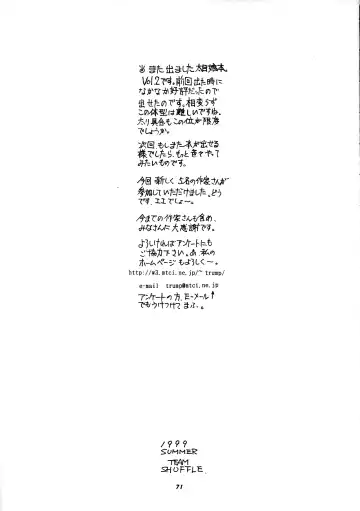 また出ました
Vol.2です。前回出た時に
なかなか好評だったので
出せたのです。相変らず
この体型は難しいですね、
太り具合もこの位が限度
でしょうか。
次回もしまた本が出せる
様でしたら、もっと色々やって
みたいものです。
今回新しく 5名の作家さんが
参加していただけました。どう
です、ココでしょ〜。
今までの作家さんも含め、
みなさんに大感謝です。
よろしければアンケートにも
ご協力下さい。あ、私の
ホームページもよろしく〜。
http://w3.mtci.ne.jp/~trump/
e-mail trump@mtci.ne.jp
アンケートの方、E-メール↑
でもうけつけてまふ。
1999
SUMMER
TEAM
SHUFFLE.
71